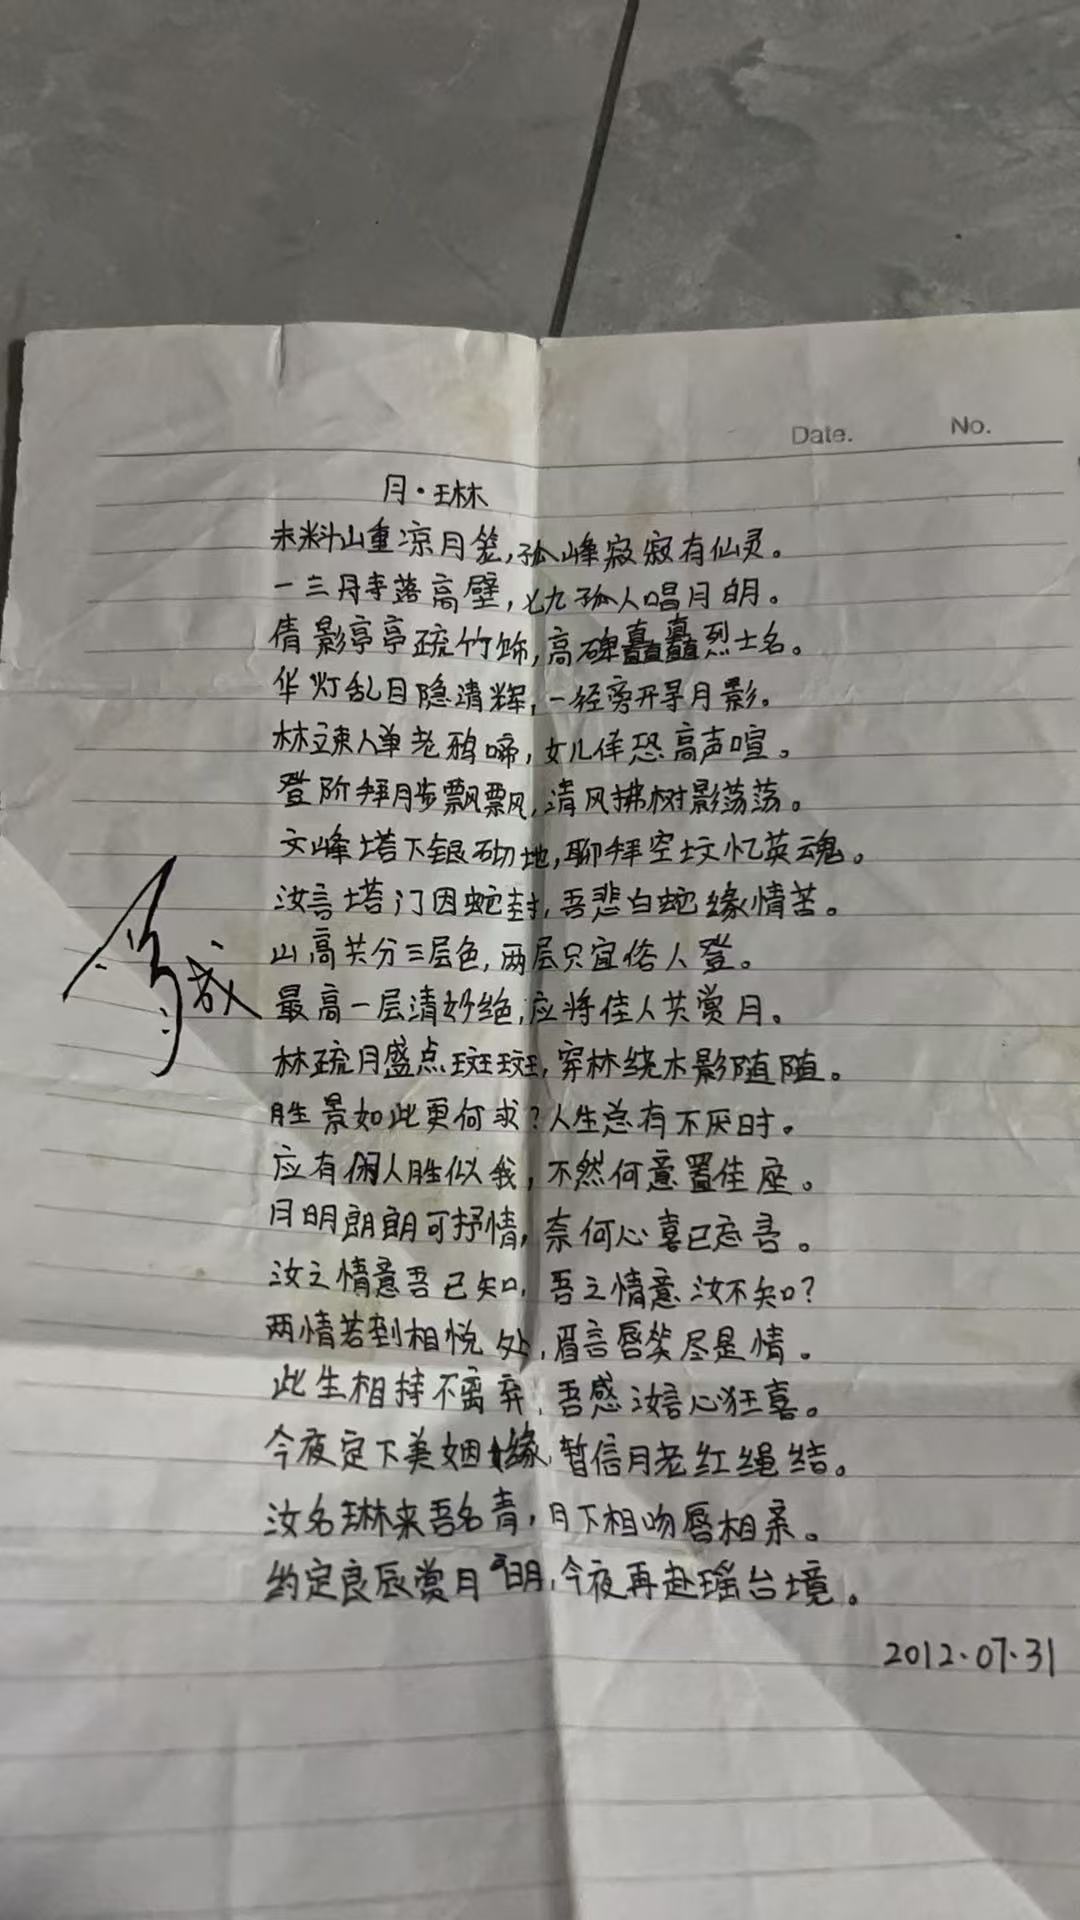 Date. No.
月·琳
未料山重凉月笼,孤峰寂寂有仙灵。
一三月寺落高壁,七九孤人唱月明。
倩影亭亭疏竹饰,高碑矗矗烈士名。
华灯乱目隐清辉,一径旁开寻月影。
林疎人单老鸦啼,女儿佯恐高声喧。
登阶拜月步飘飘,清风拂树影荡荡。
文峰塔下银砌地,聊拜空坟忆英魂。
汝言塔门因蛇封,吾悲白蛇缘情苦。
山高共分三层色,两层只宜俗人登。
最高一层清妙绝,应将佳人共赏月。
林疏月盛点斑斑,穿林绕木影随随。
胜景如此更何求?人生总有不厌时。
应有闲人胜似我,不然何意置佳座。
月明朗朗可抒情,奈何心喜已忘言。
汝之情意吾已知,吾之情意汝不知?
两情若到相悦处,眉言唇笑尽是情。
此生相持不离弃,吾感汝言心狂喜。
今夜定下美姻缘,暂信月老红绳结。
汝名琳来吾名青,月下相吻唇相亲。
约定良辰赏月明,今夜再赴瑶台境。
2012.07.31